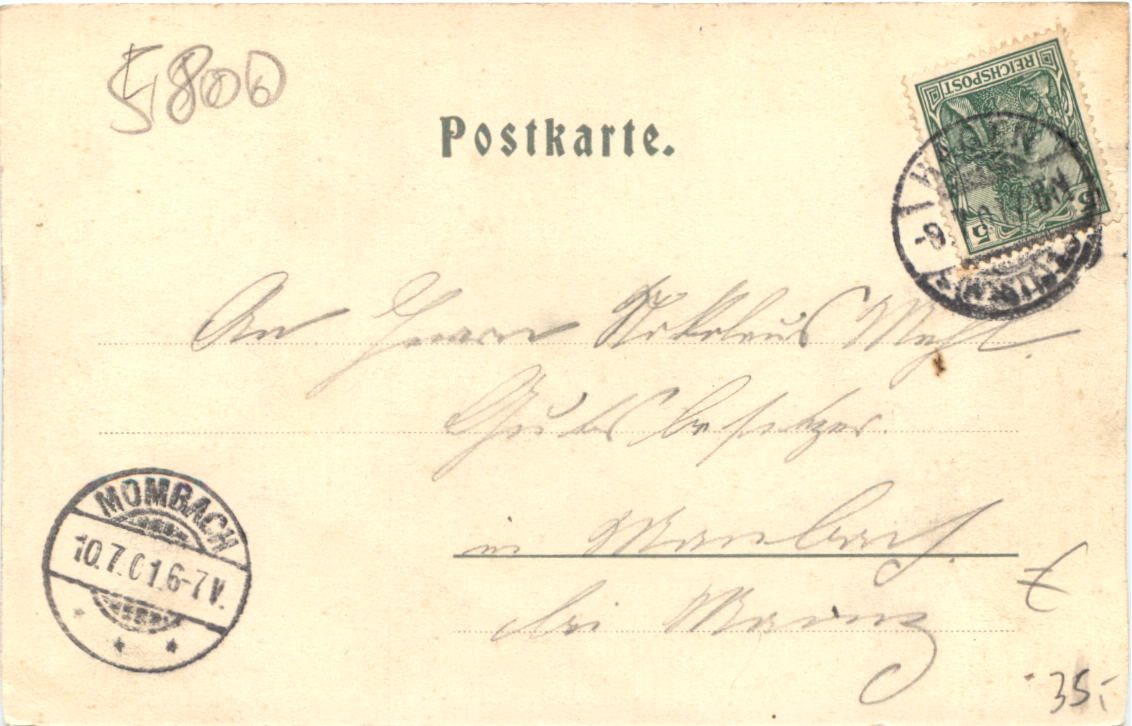 5800
Postkarte.
REICHSPOST
5 5
An Herrn Nikolaus Mehl.
Gutsbesitzer.
in Mombach.
bei Mainz
MOMBACH
10.7.01.6-7V.
35,-